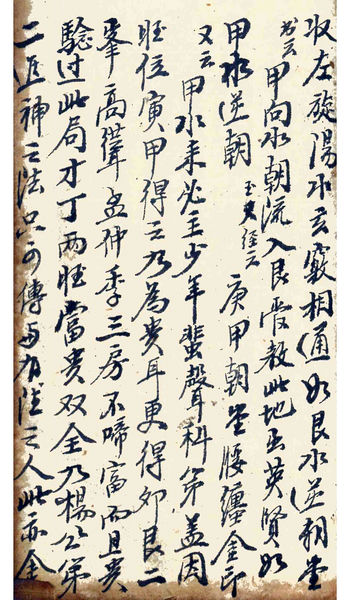 收左旋陽水玄竅相通如艮水逆朝堂
书云甲向水朝流入艮管教此地出英賢如
甲水逆朝玉史經云庚甲朝堂腰纏金印
又云甲水来必主少年蜚聲科第盖因
旺位寅甲得之乃為贵耳更得卯艮二
峯高聳孟仲季三房不啼富而且贵
驗过此局才丁兩旺富贵双全乃楊公第
二進神之法只可傳与有法之人此亦金